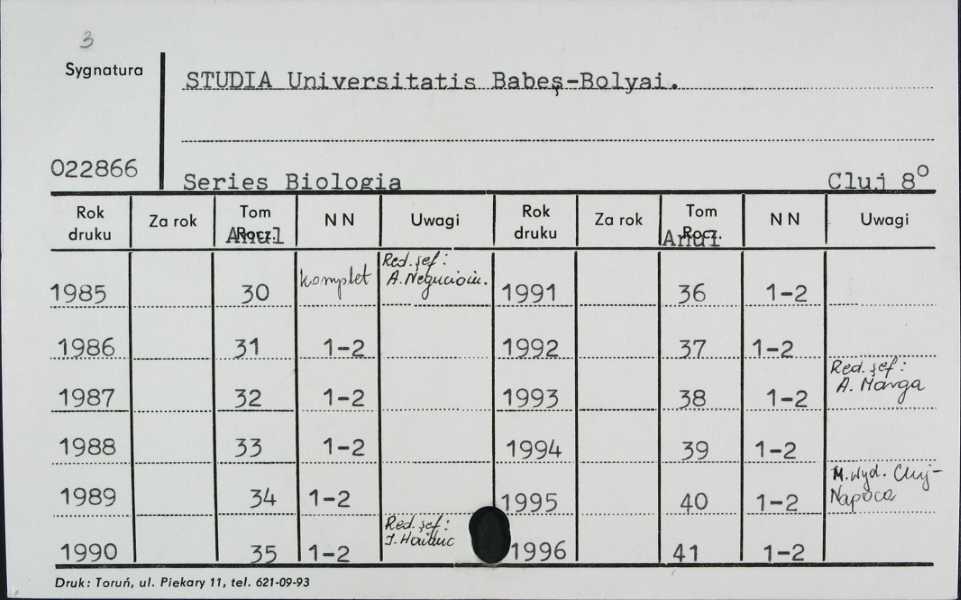 3
Sygnatura
STUDIA Universitatis Babeş-Bolyai.
022866
Series Biologia Cluj 8°
Rok druku Za rok Tom Rocz. Anul N N Uwagi Rok druku Za rok Tom Rocz. Anul N N Uwagi
1985 30 komplet Red. şef: 1991 36 1-2
1986 31 1-2 1992 37 1-2
1987 32 1-2 1993 38 1-2 Red. şef: A. Marga
1988 33 1-2 1994 39 1-2
1989 34 1-2 1995 40 1-2 M. wyd. Cluj-Napoca
1990 35 1-2 Red. şef: 1996 41 1-2
Druk: Toruń, ul. Piekary 11, tel. 621-09-93